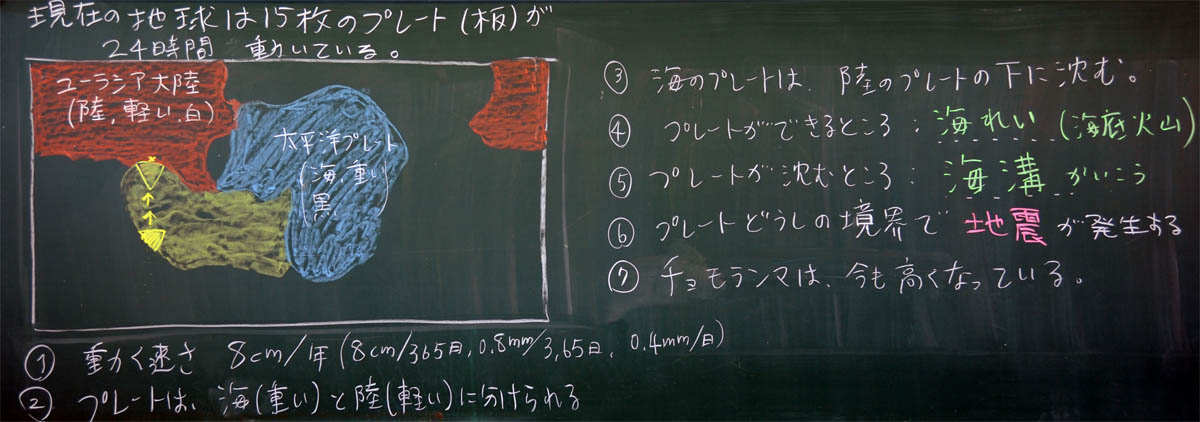 現在の地球は15枚のプレート(板)が
24時間 動いている。
ユーラシア大陸
(陸,軽い,白)
太平洋プレート
(海 重い)
黒
① 動く速さ 8cm/年(8cm/365日,0.8mm/3,65日, 0.4mm/日)
② プレートは、海(重い)と陸(軽い)に分けられる
③ 海のプレートは、陸のプレートの下に沈む。
④ プレートができるところ:海れい(海底火山)
⑤ プレートが沈むところ:海溝 かいこう
⑥ プレートどうしの境界で 地震 が発生する
⑦ チョモランマは、今も高くなっている。